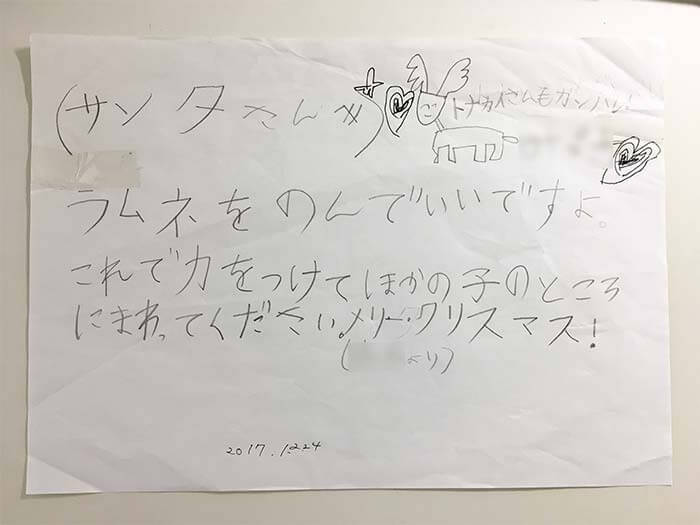 (サンタさんへ)
トナカイさんもガンバレ!
ラムネをのんでいいですよ。
これで力をつけてほかの子のところ
にまわってください。メリークリスマス!
(より)
2017.12.24